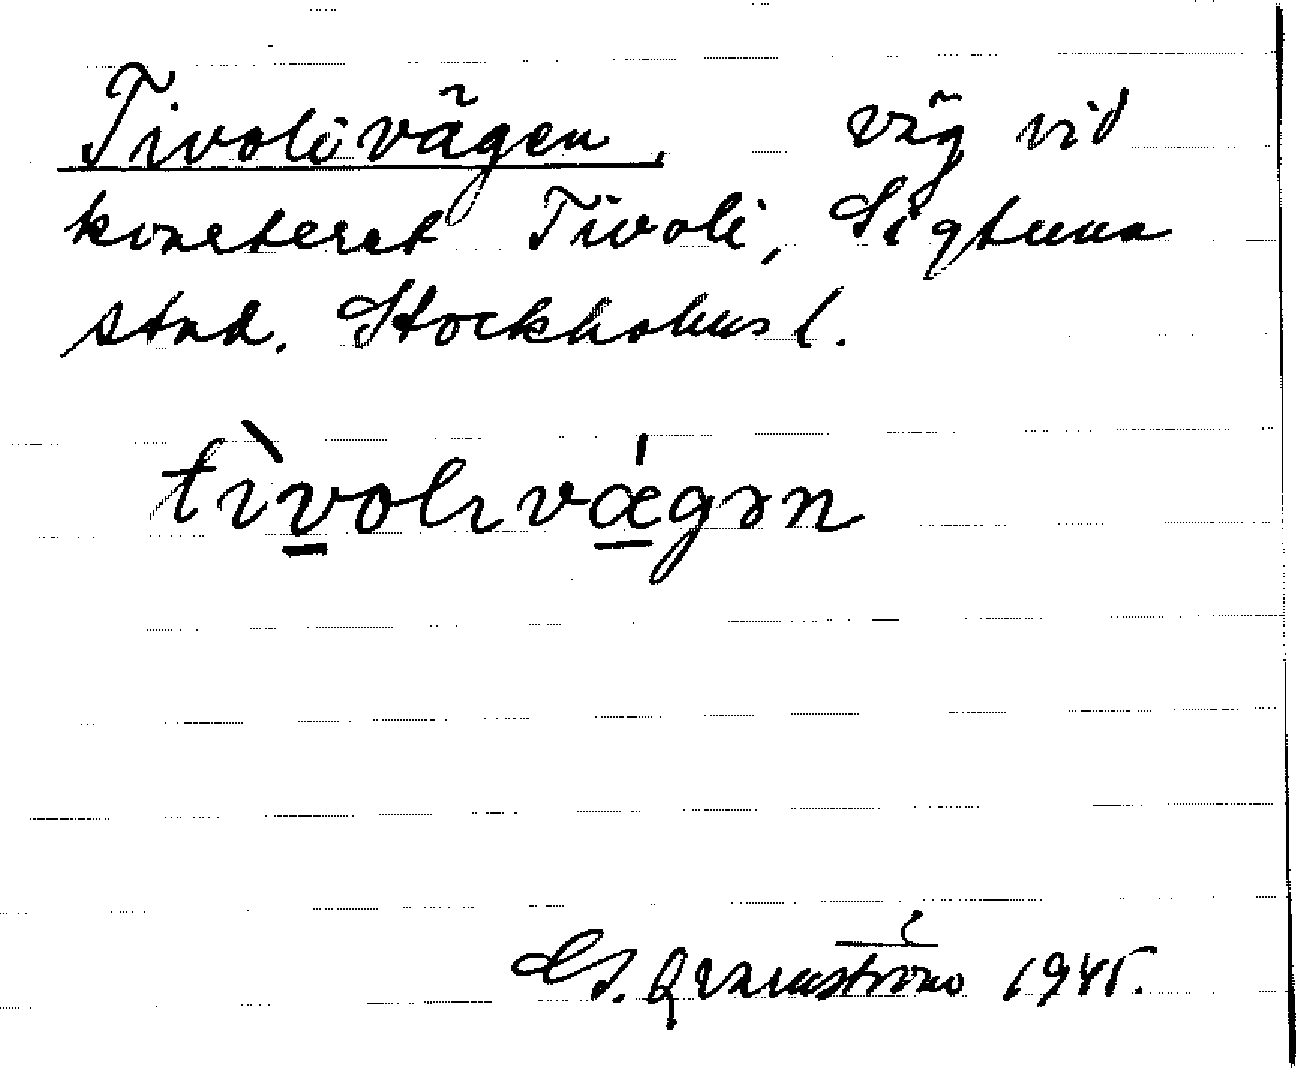 Tivolivägen, väg vid
kvarteret Tivoli, Sigtuna
stad. Stockholms l.
tìvolɩvǽgən
G. Qvarnström 1945.